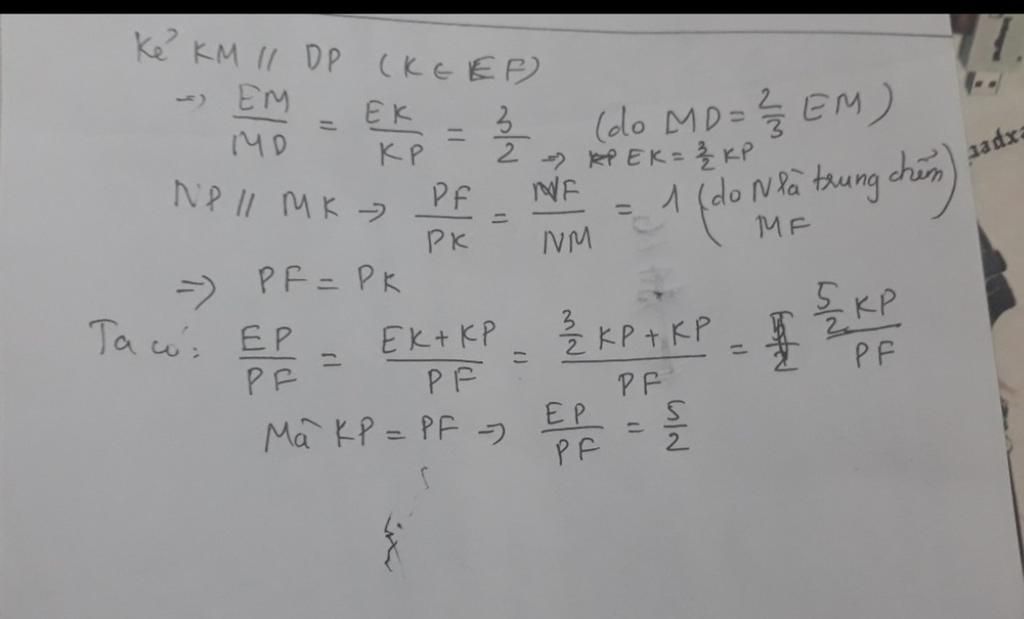 Kẻ KM // DP (K ∈ EF)
=> EM/MD = EK/KP = 3/2 (do MD = 2/3 EM)
=> EK = 3/2 KP
NP // MK → PF/PK = NF/NM = 1 (do N là trung điểm)
MF
=> PF = PK
Ta có: EP/PF = (EK + KP)/PF = (3/2 KP + KP)/PF = (5/2 KP)/PF
Mà KP = PF => EP/PF = 5/2